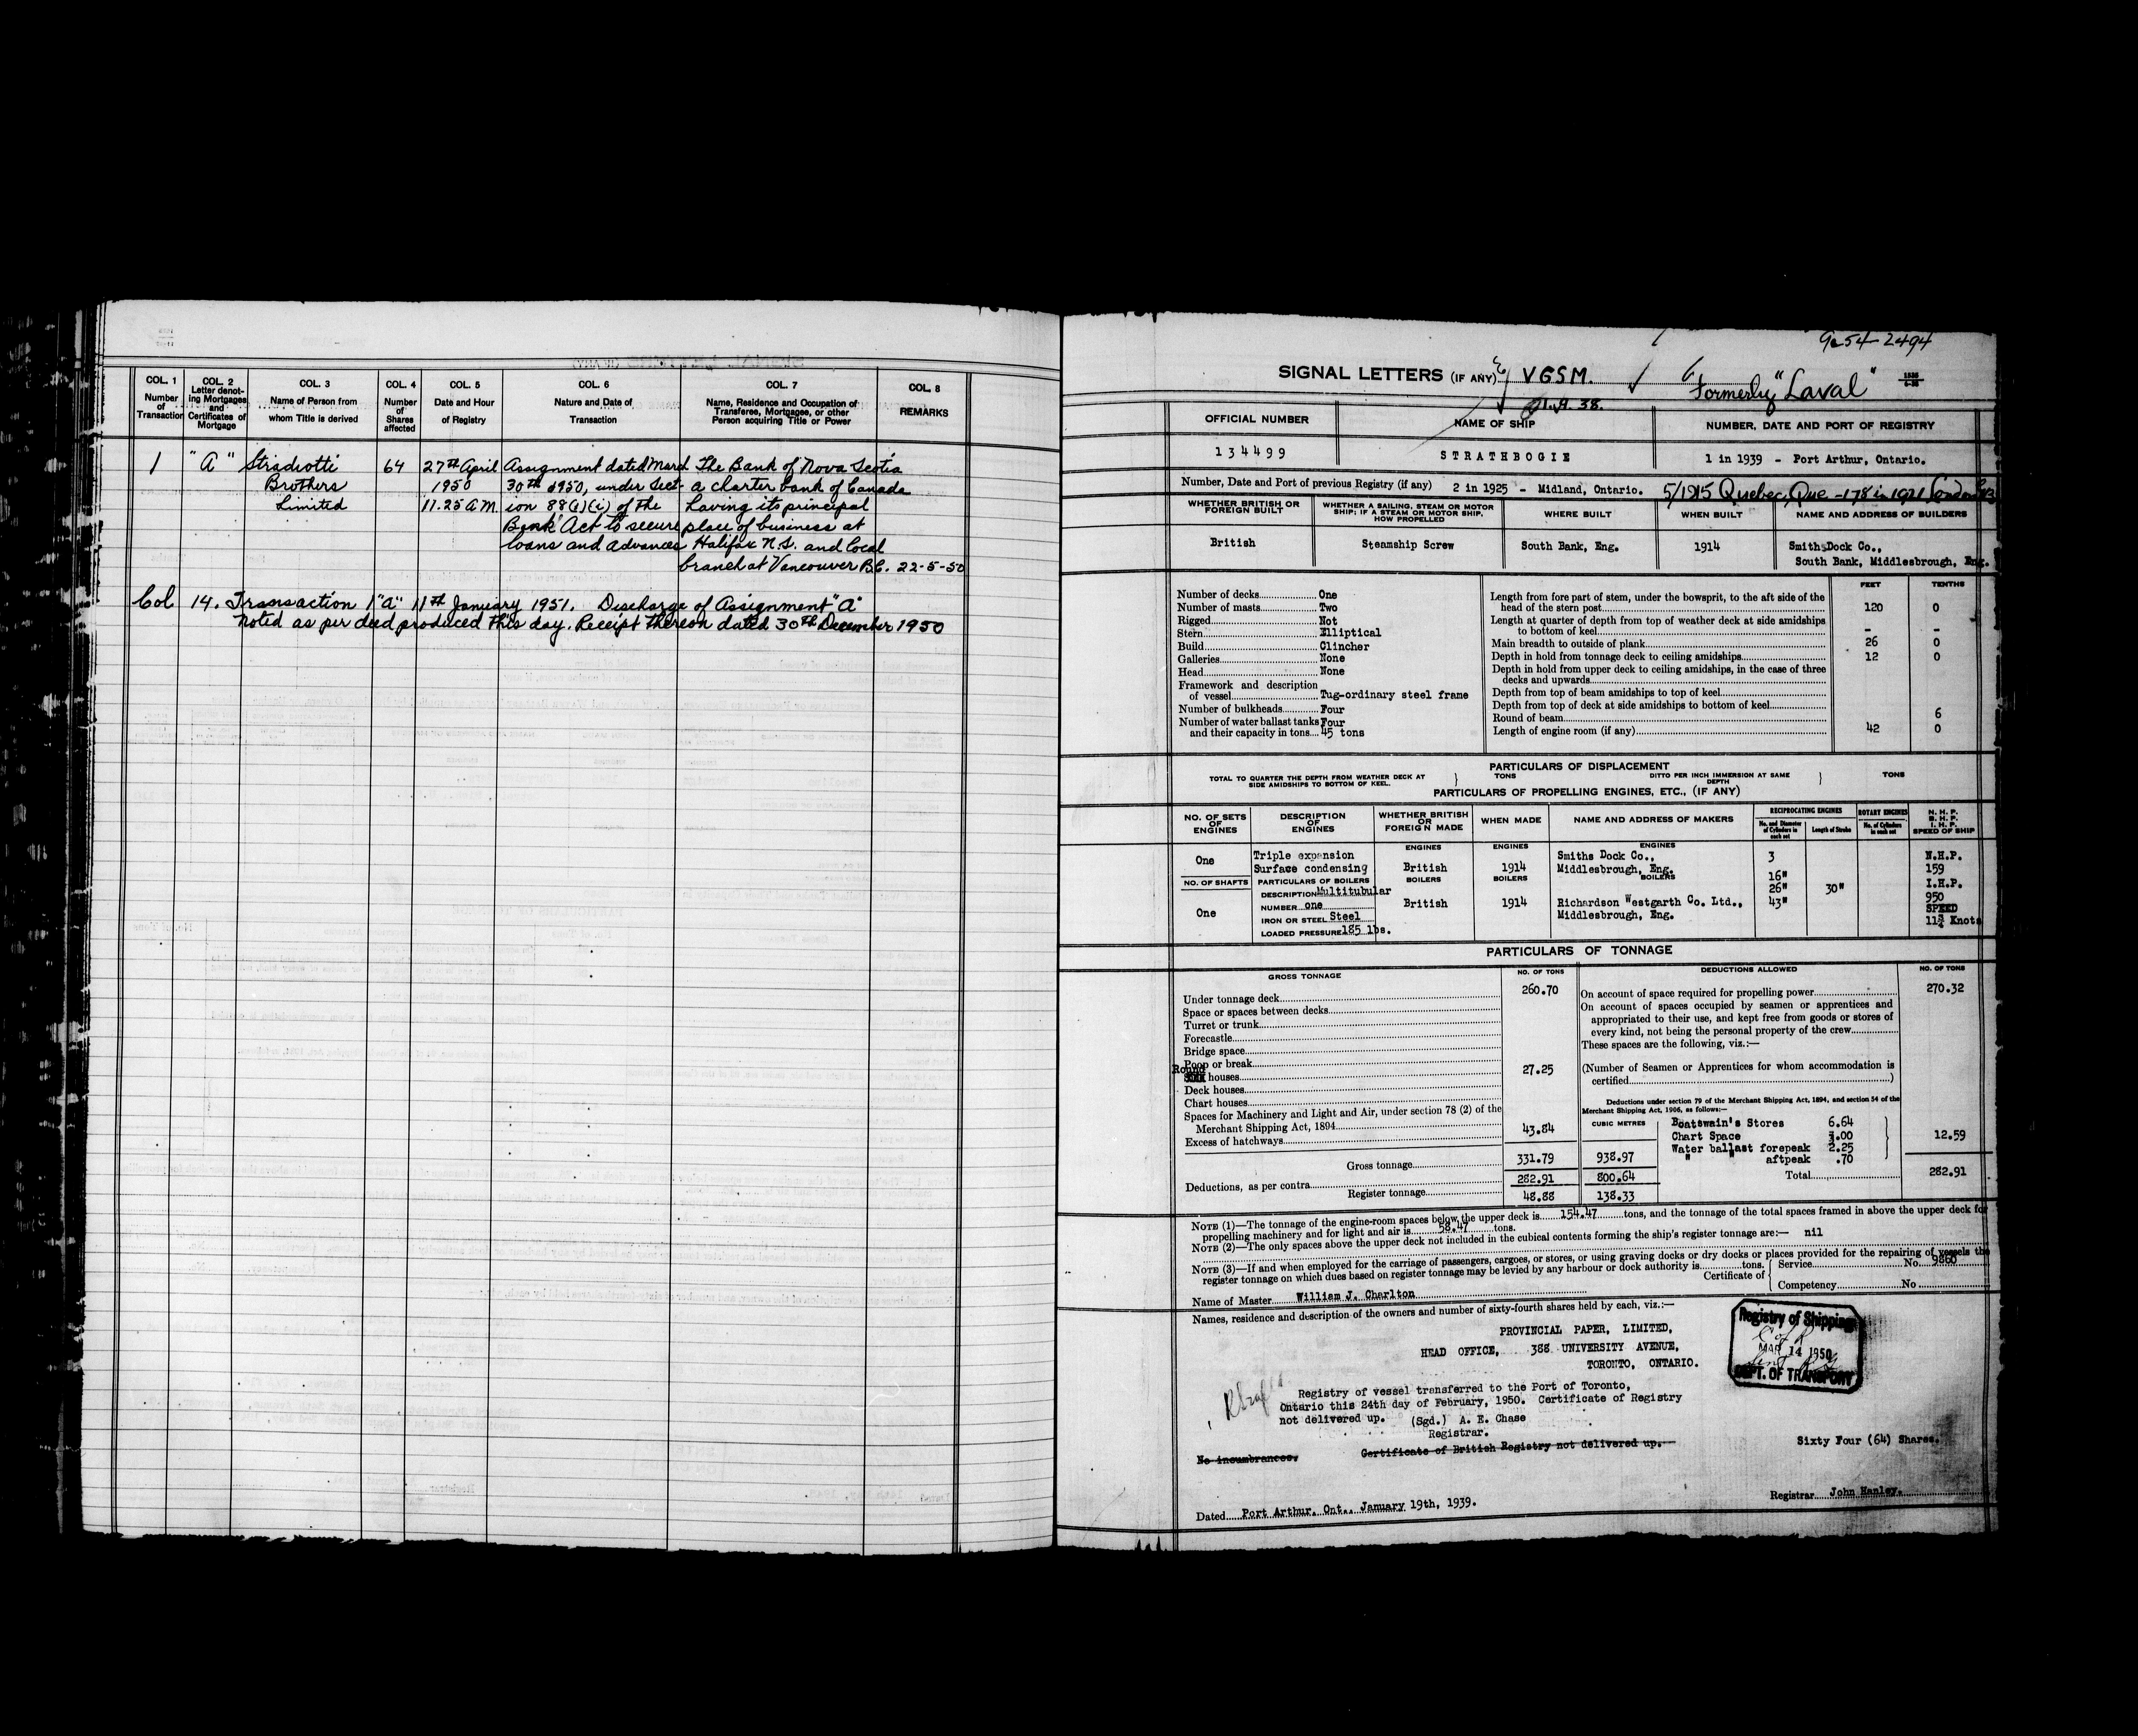 COL. 1
Number
of
Transaction
COL. 2
Letter denot-
ing Mortgages
and
Certificates of
Mortgage
COL. 3
Name of Person from
whom Title is derived
COL. 4
Number
of
Shares
affected
COL. 5
Date and Hour
of Registry
COL. 6
Nature and Date of
Transaction
COL. 7
Name, Residence and Occupation of
Transferee, Mortgagee, or other
Person acquiring Title or Power
COL. 8
REMARKS
1 "A" Stradiotti 64 27th April Assignment dated March The Bank of Nova Scotia
Brothers 1950 30th 1950, under Sect- a charter bank of Canada
Limited 11.25 A.M. ion 88(1)(i) of the having its principal
Bank Act to secure place of business at
loans and advances Halifax N.S. and local
branch at Vancouver B.C. 22-5-50
Col 14. Transaction 1 "A" 11th January 1951. Discharge of Assignment "A"
noted as per deed produced this day. Receipt thereon dated 30th December 1950
9-54-2494
SIGNAL LETTERS (IF ANY) VGSM.
Formerly "Laval"
OFFICIAL NUMBER
NAME OF SHIP
NUMBER, DATE AND PORT OF REGISTRY
134499
STRATHBOGIE
1 in 1939 - Port Arthur, Ontario.
Number, Date and Port of previous Registry (if any) 2 in 1925 - Midland, Ontario. 5/1915 Quebec, Que - 178 in 1921 London
WHETHER BRITISH OR
FOREIGN BUILT
WHETHER A SAILING, STEAM OR MOTOR
SHIP; IF A STEAM OR MOTOR SHIP,
HOW PROPELLED
WHERE BUILT
WHEN BUILT
NAME AND ADDRESS OF BUILDERS
British
Steamship Screw
South Bank, Eng.
1914
Smiths Dock Co.,
South Bank, Middlesbrough, Eng.
FEET TENTHS
Number of decks One
Number of masts Two
Rigged Not
Stern Elliptical
Build Clincher
Galleries None
Head None
Framework and description
of vessel Tug-ordinary steel frame
Number of bulkheads Four
Number of water ballast tanks Four
and their capacity in tons 45 tons
Length from fore part of stem, under the bowsprit, to the aft side of the
head of the stern post 120 0
Length at quarter of depth from top of weather deck at side amidships
to bottom of keel - -
Main breadth to outside of plank 26 0
Depth in hold from tonnage deck to ceiling amidships 12 0
Depth in hold from upper deck to ceiling amidships, in the case of three
decks and upwards
Depth from top of beam amidships to top of keel
Depth from top of deck at side amidships to bottom of keel
Round of beam 6
Length of engine room (if any) 42 0
PARTICULARS OF DISPLACEMENT
TOTAL TO QUARTER THE DEPTH FROM WEATHER DECK AT
SIDE AMIDSHIPS TO BOTTOM OF KEEL.
TONS
DITTO PER INCH IMMERSION AT SAME
DEPTH
TONS
PARTICULARS OF PROPELLING ENGINES, ETC., (IF ANY)
NO. OF SETS
OF
ENGINES
DESCRIPTION
OF
ENGINES
WHETHER BRITISH
OR
FOREIGN MADE
WHEN MADE
NAME AND ADDRESS OF MAKERS
RECIPROCATING ENGINES
No. and Diameter
of Cylinders in
each set
Length of Stroke
ROTARY ENGINES
No. of Cylinders
in each set
N. H. P.
B. H. P.
I. H. P.
SPEED OF SHIP
One
Triple expansion
Surface condensing
ENGINES
British
ENGINES
1914
ENGINES
Smiths Dock Co.,
Middlesbrough, Eng.
3
16"
26"
43"
30"
N.H.P.
159
I.H.P.
950
SPEED
11¾ Knots
NO. OF SHAFTS
One
PARTICULARS OF BOILERS
DESCRIPTION Multitubular
NUMBER one
IRON OR STEEL Steel
LOADED PRESSURE 185 lbs.
BOILERS
British
BOILERS
1914
BOILERS
Richardson Westgarth Co. Ltd.,
Middlesbrough, Eng.
PARTICULARS OF TONNAGE
GROSS TONNAGE
NO. OF TONS
DEDUCTIONS ALLOWED
NO. OF TONS
Under tonnage deck 260.70
Space or spaces between decks
Turret or trunk
Forecastle
Bridge space
Poop or break
Round houses 27.25
Deck houses
Chart houses
Spaces for Machinery and Light and Air, under section 78 (2) of the
Merchant Shipping Act, 1894 43.84
Excess of hatchways
CUBIC METRES
Gross tonnage 331.79 938.97
Deductions, as per contra 282.91 800.64
Register tonnage 48.88 138.33
On account of space required for propelling power 270.32
On account of spaces occupied by seamen or apprentices and
appropriated to their use, and kept free from goods or stores of
every kind, not being the personal property of the crew
These spaces are the following, viz.:—
(Number of Seamen or Apprentices for whom accommodation is
certified )
Deductions under section 79 of the Merchant Shipping Act, 1894, and section 54 of the
Merchant Shipping Act, 1906, as follows:—
Boatswain's Stores 6.64
Chart Space 3.00
Water ballast forepeak 2.25
" " aftpeak .70
12.59
Total 282.91
NOTE (1)—The tonnage of the engine-room spaces below the upper deck is 154.47 tons, and the tonnage of the total spaces framed in above the upper deck for
propelling machinery and for light and air is 58.47 tons.
NOTE (2)—The only spaces above the upper deck not included in the cubical contents forming the ship's register tonnage are:— nil
NOTE (3)—If and when employed for the carriage of passengers, cargoes, or stores, or using graving docks or dry docks or places provided for the repairing of vessels the
register tonnage on which dues based on register tonnage may be levied by any harbour or dock authority is tons.
Certificate of
Service No. 9860
Competency No
Name of Master William J. Charlton
Names, residence and description of the owners and number of sixty-fourth shares held by each, viz.:—
PROVINCIAL PAPER, LIMITED,
HEAD OFFICE, 388 UNIVERSITY AVENUE,
TORONTO, ONTARIO.
Registry of Shipping
C of R
MAR 14 1950
DEPT. OF TRANSPORT
Registry of vessel transferred to the Port of Toronto,
Ontario this 24th day of February, 1950. Certificate of Registry
not delivered up. (Sgd.) A. E. Chase
Registrar.
No incumbrances. Certificate of British Registry not delivered up.
Sixty Four (64) Shares.
Dated Port Arthur, Ont., January 19th, 1939.
Registrar John Hanley.